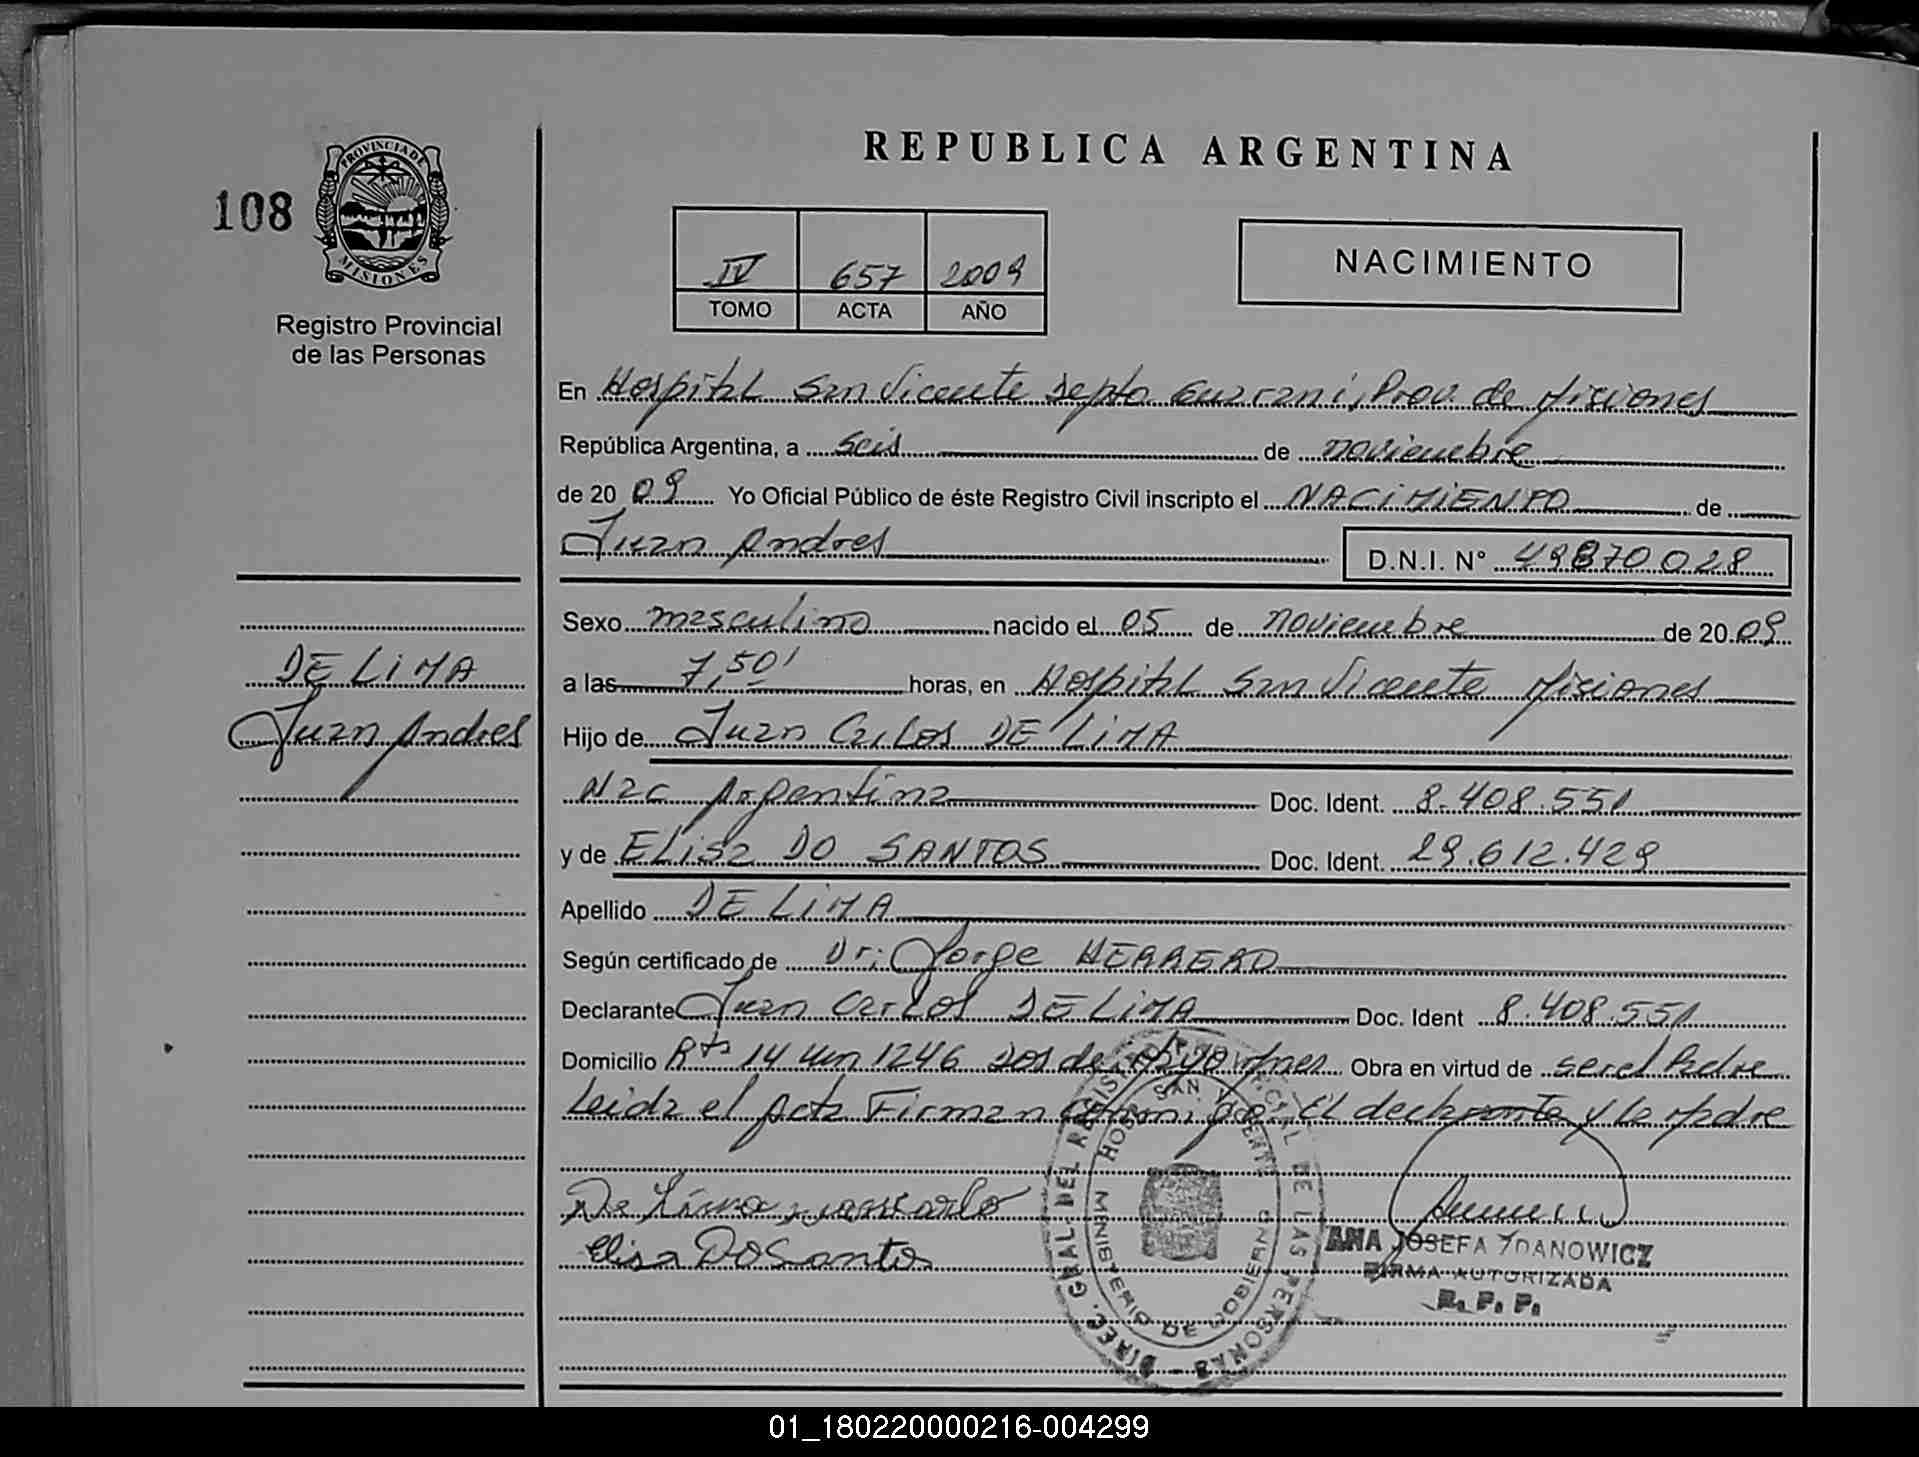 REPUBLICA ARGENTINA
108
PROVINCIA DE
MISIONES
Registro Provincial
de las Personas
IV 657 2009
TOMO ACTA AÑO
NACIMIENTO
En Hospital San Vicente Depto Guarani, Prov. de Misiones
República Argentina, a seis de noviembre
de 20 09 Yo Oficial Público de éste Registro Civil inscripto el NACIMIENTO de
Juan Andres D.N.I. N° 49870028
Sexo masculino nacido el 05 de noviembre de 20 09
DE LIMA
Juan Andres
a las 7,50' horas, en Hospital San Vicente Misiones
Hijo de Juan Carlos DE LIMA
Nac Argentina Doc. Ident. 8.408.551
y de Elisa DO SANTOS Doc. Ident. 29.612.429
Apellido DE LIMA
Según certificado de Dr: Jorge HERRERO
Declarante Juan Carlos DE LIMA Doc. Ident 8.408.551
Domicilio Rta 14 Km 1246 Dos de Mayo Mnes Obra en virtud de ser el Padre
Leida el Acta Firman conmigo El declarante y la Madre
De Lima
Elisa Do Santos
DIREC. GRAL. DEL REGISTRO PROVINCIAL DE LAS PERSONAS
HOSP. SAN VICENTE
MINISTERIO DE GOBIERNO
ANA JOSEFA ZDANOWICZ
FIRMA AUTORIZADA
R. P. P.
01_180220000216-004299